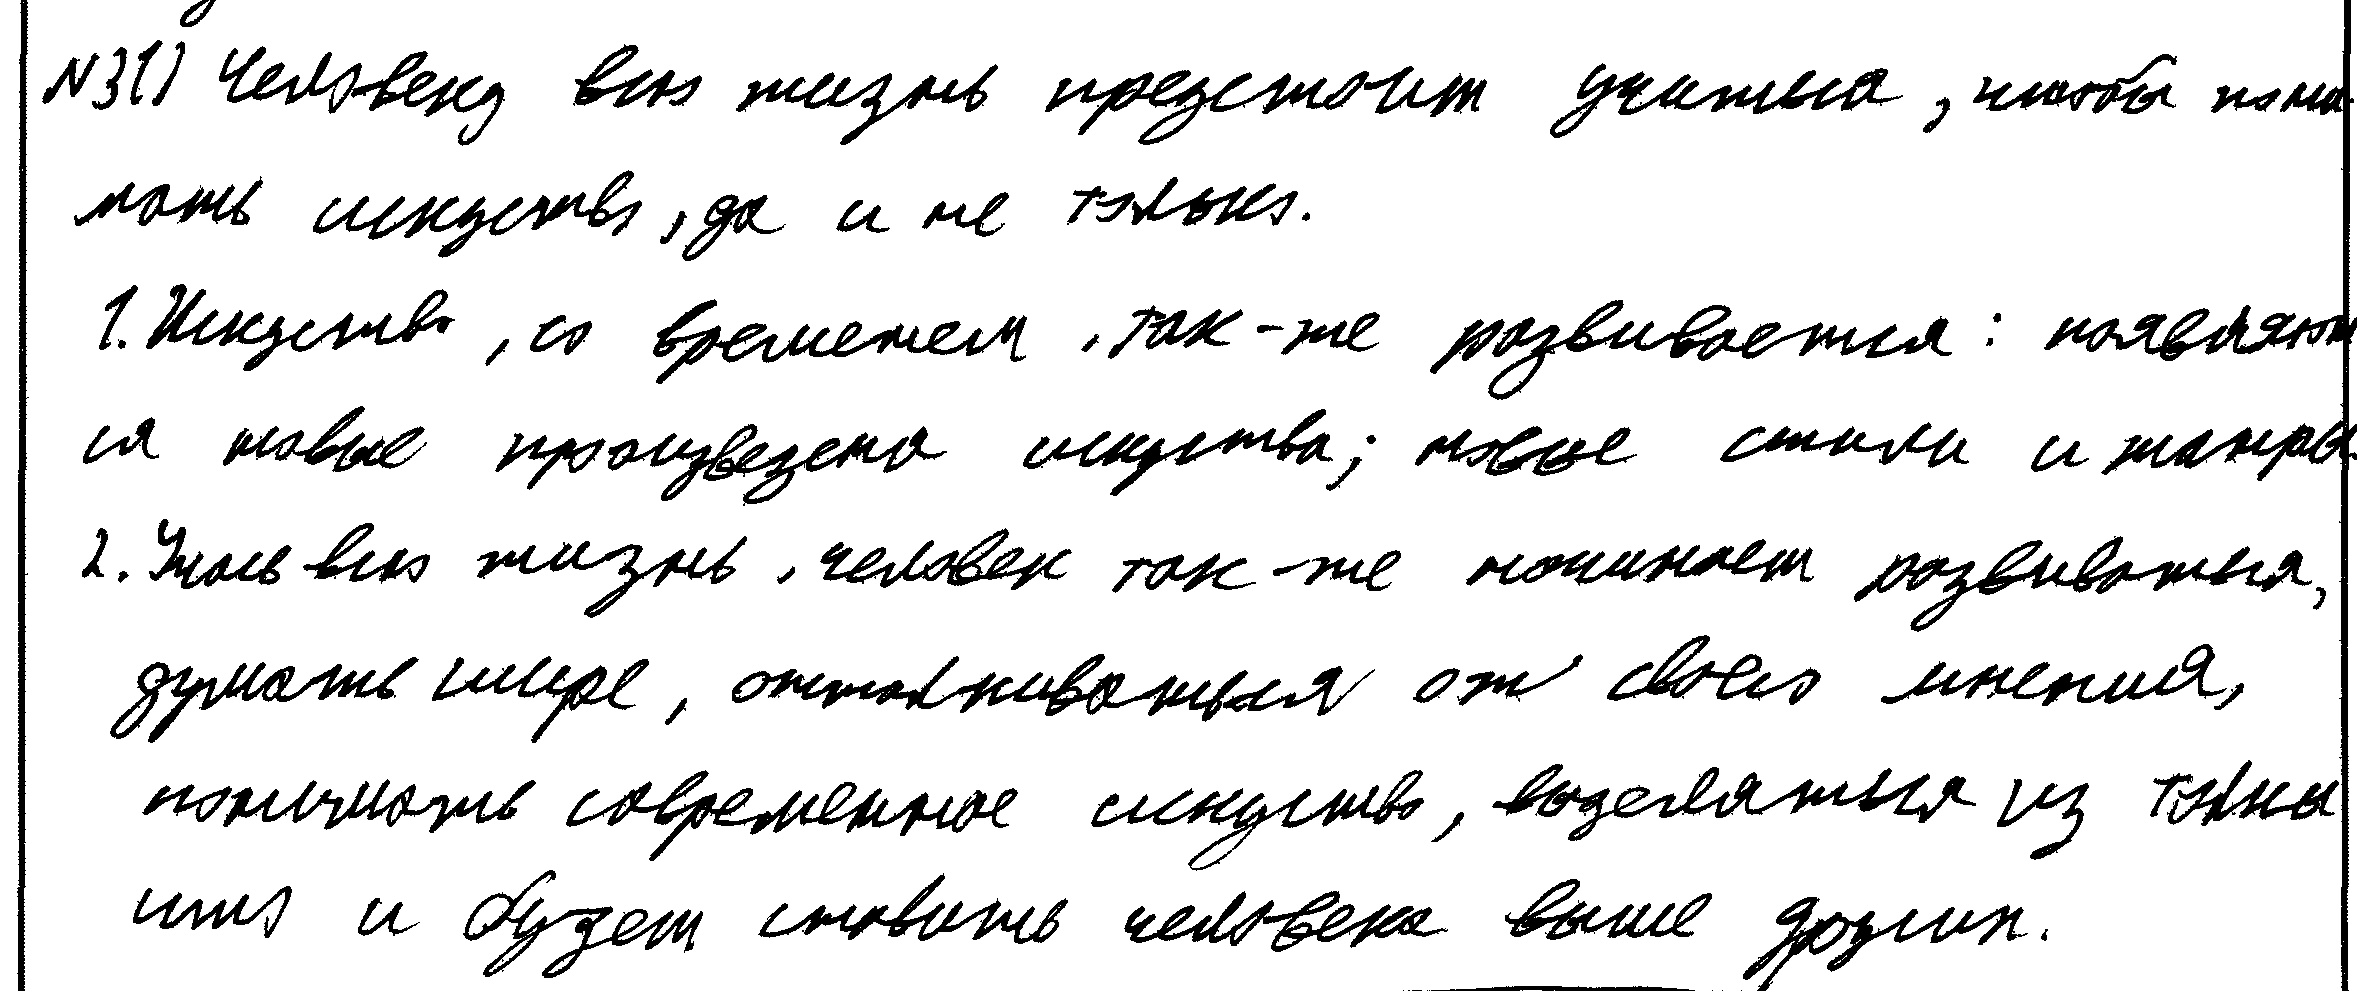 N3(1) Человеку всю жизнь предстоит учиться, чтобы пони-
мать искуство, да и не только.
1. Искуство, со временем, так-же развивается: появляют
ся новые произведена искуства; новые стили и жанры.
2. Учась всю жизнь, человек так-же начинает развиваться,
думать шире, отталкиваться от своего мнения,
понимать современное искуство, выделяться из толпы
 и будет ставить человека выше других.